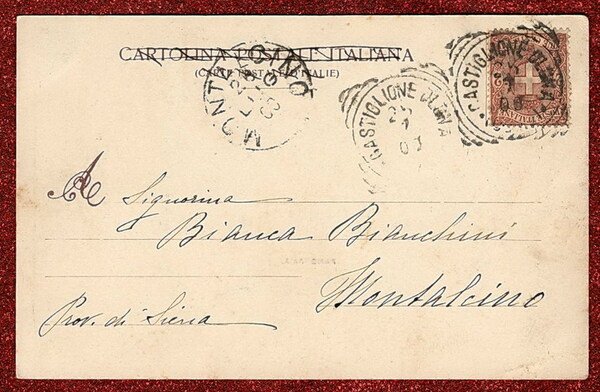 CARTOLINA POSTALE ITALIANA
(CARTE POSTALE D'ITALIE)
CASTIGLIONE D'
CASTIGLIONE D'
Signorina
Bianca Bianchini
Montalcino
Prov. di Siena